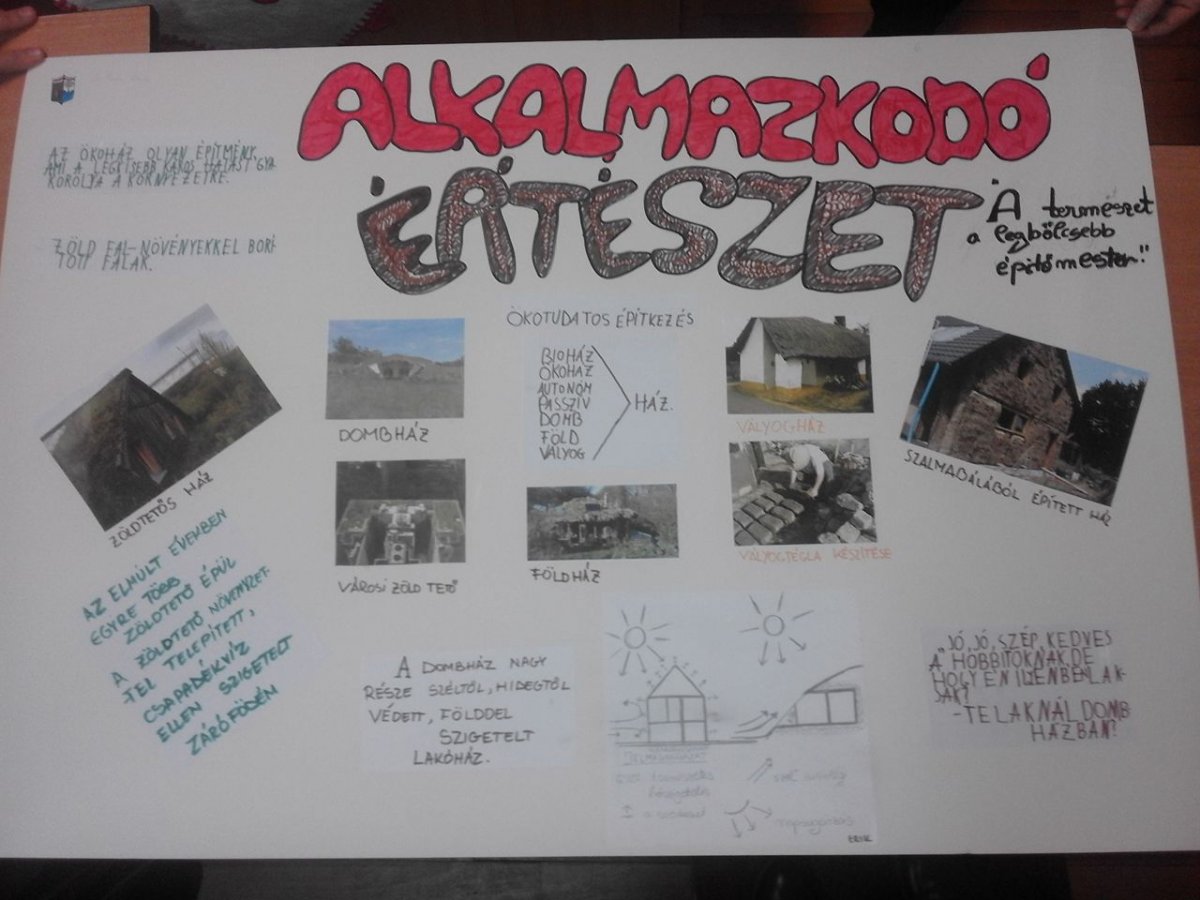 ALKALMAZKODÓ
ÉPÍTÉSZET
"A természet
a legbölcsebb
építőmester!"
AZ ÖKOHÁZ OLYAN ÉPÍTMÉNY,
AMI A LEGKISEBB KÁROS HATÁST GYA-
KOROLJA A KÖRNYEZETRE.
ZÖLD FAL-NÖVÉNYEKKEL BORÍ-
TOTT FALAK.
ZÖLDTETŐS HÁZ
DOMBHÁZ
VÁROSI ZÖLD TETŐ
ÖKOTUDATOS ÉPÍTKEZÉS
BIOHÁZ
ÖKOHÁZ
AUTONÓM
PASSZÍV
DOMB
FÖLD
VÁLYOG
HÁZ.
FÖLDHÁZ
VÁLYOGHÁZ
VÁLYOGTÉGLA KÉSZÍTÉSE
SZALMABÁLÁBÓL ÉPÍTETT HÁZ
AZ ELMÚLT ÉVEMBEN
EGYRE TÖBB
ZÖLDTETŐ ÉPÜL
A ZÖLDTETŐ NÖVÉNYZET-
TEL TELEPÍTETT,
CSAPADÉKVÍZ
ELLEN SZIGETELT
ZÁRÓFÖDÉM
A DOMBHÁZ NAGY
RÉSZE SZÉLTŐL, HIDEGTŐL
VÉDETT, FÖLDDEL
SZIGETELT
LAKÓHÁZ.
napsugárzás
ERIK
"JÓ, JÓ, SZÉP, KEDVES
A HOBBITOKNAK, DE
HOGY ÉN ILYENBEN LAK-
JAK?
-TE LAKNÁL DOMB
HÁZBAN?